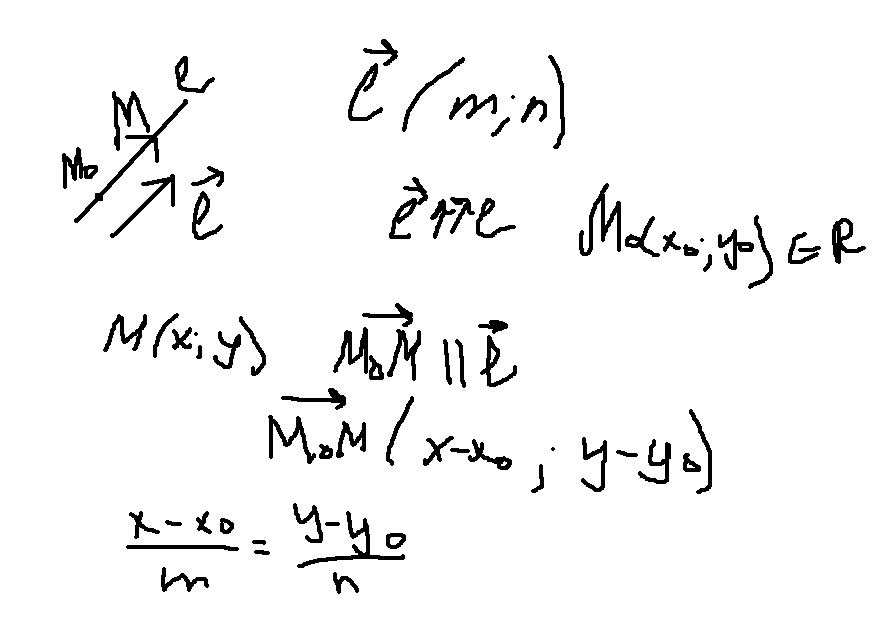 ℓ
M
M₀
ℓ⃗
ℓ⃗ (m; n)
ℓ⃗ ⇈ ℓ M₀(x₀; y₀) ∈ R
M(x; y) M₀M⃗ || ℓ⃗
M₀M⃗ (x-x₀ ; y-y₀)
(x-x₀)/m = (y-y₀)/n